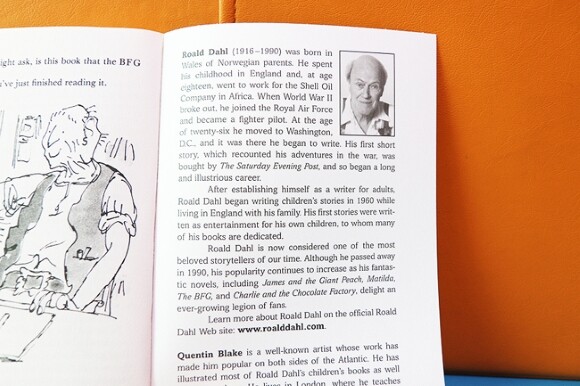 ight ask, is this book that the BFG
've just finished reading it.
Roald Dahl (1916–1990) was born in
Wales of Norwegian parents. He spent
his childhood in England and, at age
eighteen, went to work for the Shell Oil
Company in Africa. When World War II
broke out, he joined the Royal Air Force
and became a fighter pilot. At the age
of twenty-six he moved to Washington,
D.C., and it was there he began to write. His first short
story, which recounted his adventures in the war, was
bought by The Saturday Evening Post, and so began a long
and illustrious career.
After establishing himself as a writer for adults,
Roald Dahl began writing children's stories in 1960 while
living in England with his family. His first stories were writ-
ten as entertainment for his own children, to whom many
of his books are dedicated.
Roald Dahl is now considered one of the most
beloved storytellers of our time. Although he passed away
in 1990, his popularity continues to increase as his fantas-
tic novels, including James and the Giant Peach, Matilda,
The BFG, and Charlie and the Chocolate Factory, delight an
ever-growing legion of fans.
Learn more about Roald Dahl on the official Roald
Dahl Web site: www.roalddahl.com.
Quentin Blake is a well-known artist whose work has
made him popular on both sides of the Atlantic. He has
illustrated most of Roald Dahl's children's books as well
He lives in London, where he teaches